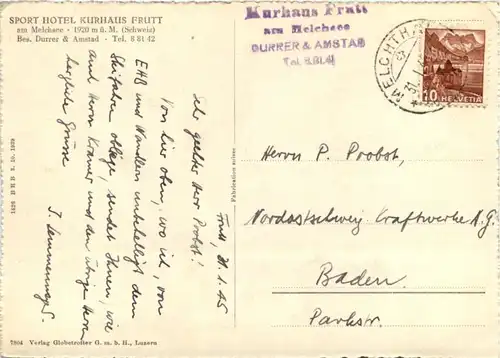 SPORT HOTEL KURHAUS FRUTT
am Melchsee - 1920 m ü. M. (Schweiz)
Bes. Durrer & Amstad - Tel. 8 81 42
Kurhaus Frutt
am Melchsee
DURRER & AMSTAD
Tel. 8.81.41
MELCHTHAL
10 HELVETIA
Frutt, 31.1.45
Sehr geehrter Herr Probst!
Von hier oben, wo ich, von
EHB und Wandern unbehelligt dem
Skifahren obliege, sendet Ihnen, wie
auch Herrn Kramer und den übrigen Herren
herzliche Grüsse
J.
Herrn P. Probst,
Nordostschweiz. Kraftwerke A.G.
Baden
Parkstr.
Fabrication suisse
7804 Verlag Globetrotter G. m. b. H., Luzern